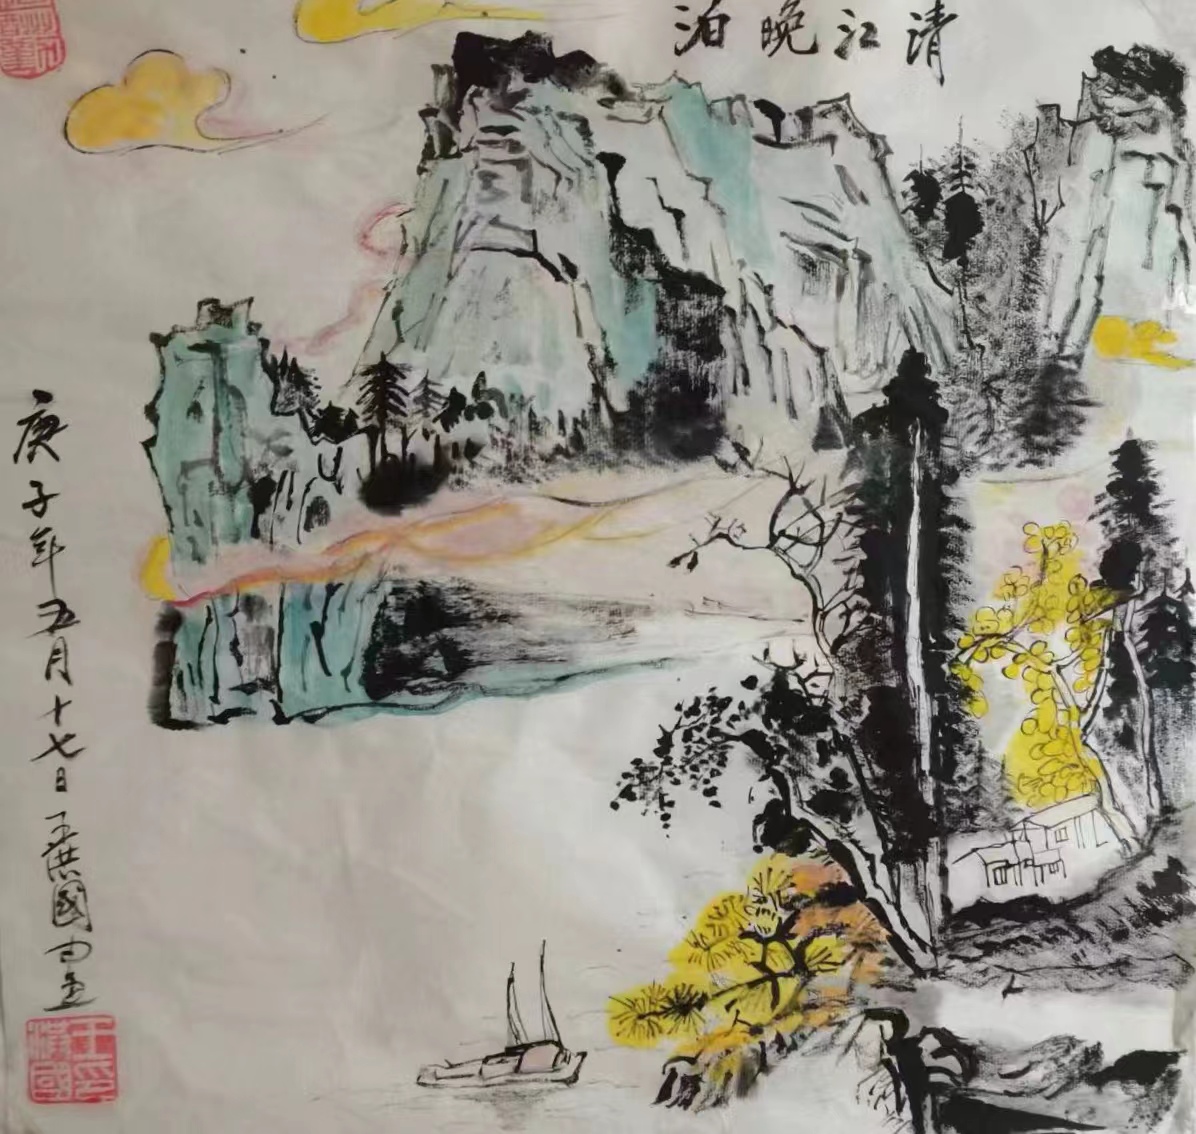 清江晚泊
庚子年五月十七日王洪國
王印
洪國